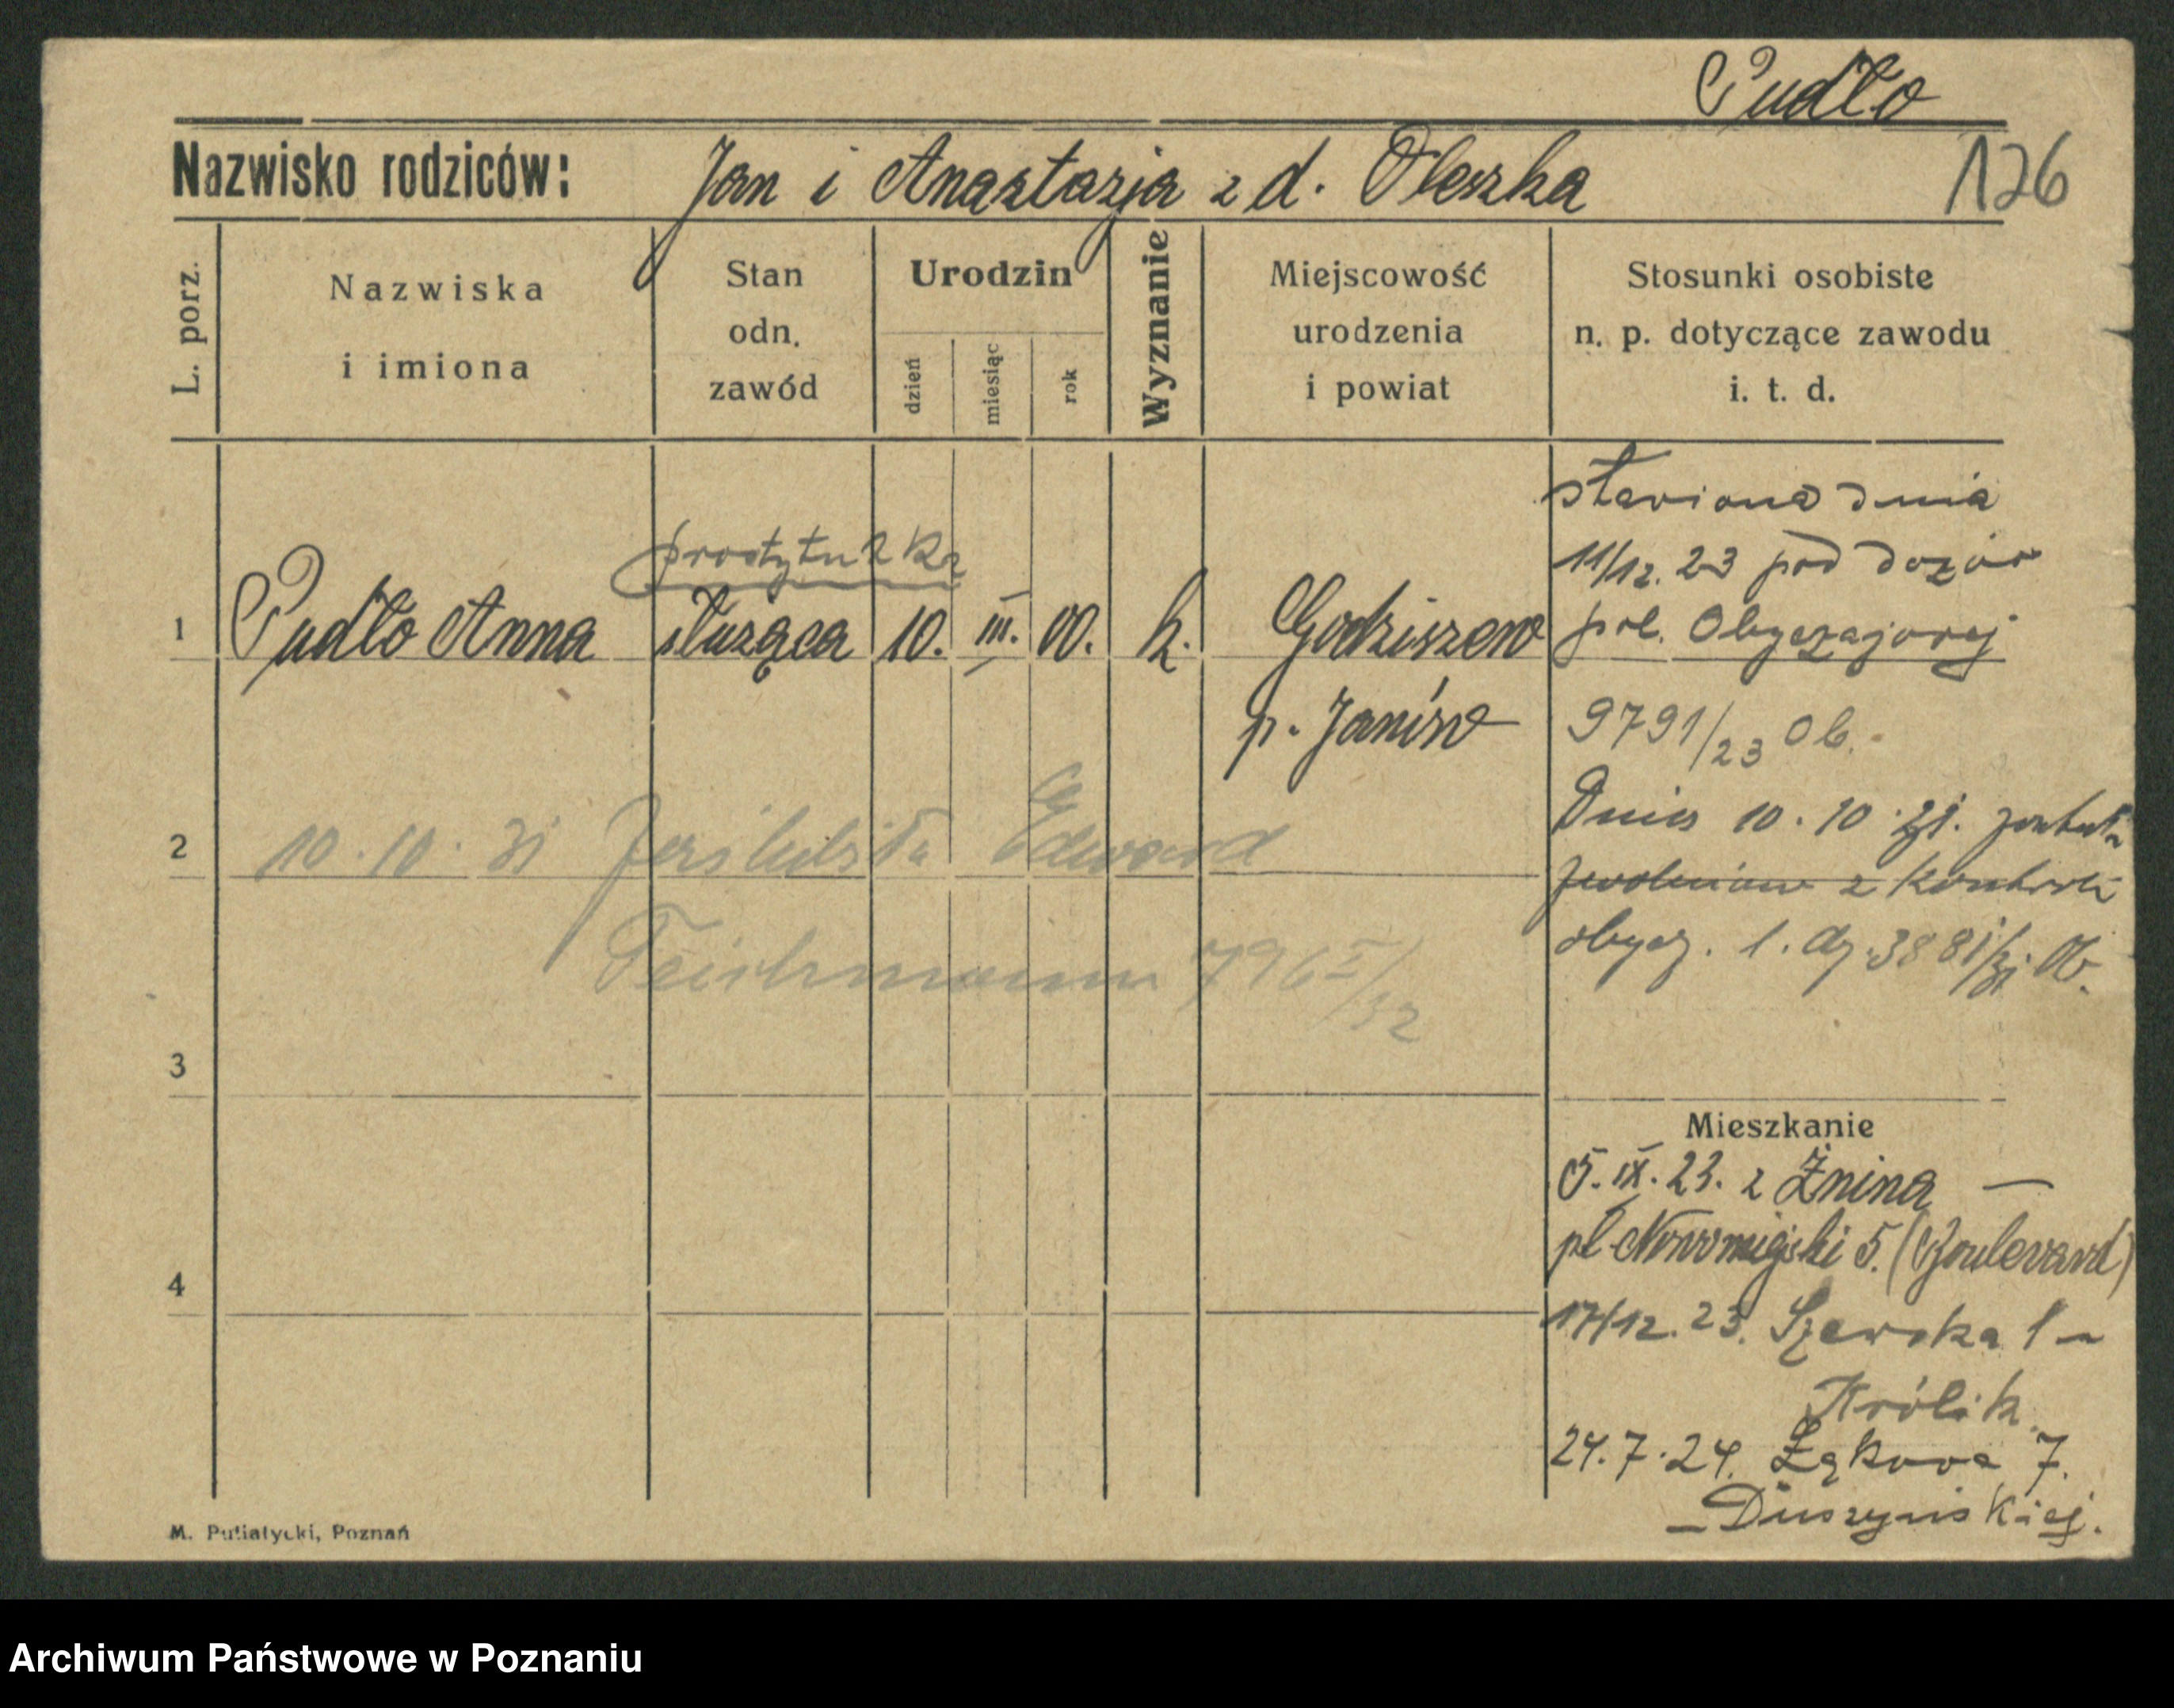 Pudło
Nazwisko rodziców: Jan i Anastazja z d. Oleszka
126
L. porz.
Nazwiska
i imiona
Stan
odn.
zawód
Urodzin
dzień
miesiąc
rok
Wyznanie
Miejscowość
urodzenia
i powiat
Stosunki osobiste
n. p. dotyczące zawodu
i. t. d.
stawiona dnia
11/12. 23 pod dozór
pol. Obyczajowej
prostytutka
1 Pudło Anna służąca 10. III. 00. k. Godziszew
p. Janów
9791/23 Ob.
Dnia 10.10.31. została
zwolniona z kontroli
obycz. l. dz. 3881/31 Ob.
2 10.10.31 Edward
Teichmann 796 I/32
3
Mieszkanie
5. IX. 23. z Żnina —
pl. Nowomiejski 5. (Boulevard)
4
17/12. 23. Szewska 1 –
Królik
24.7.24. Łąkowa 7.
– Duszyńskiej.
M. Putiatycki, Poznań
Archiwum Państwowe w Poznaniu